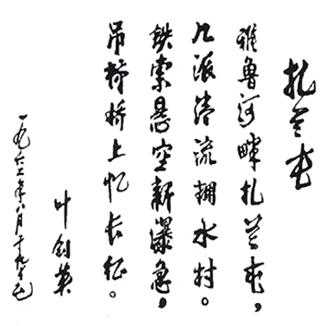 扎兰屯
雅鲁河畔扎兰屯,
几派清流拥水村。
铁索悬空新瀑急,
吊桥桥上忆长征。
叶剑英
一九六二年八月十九日